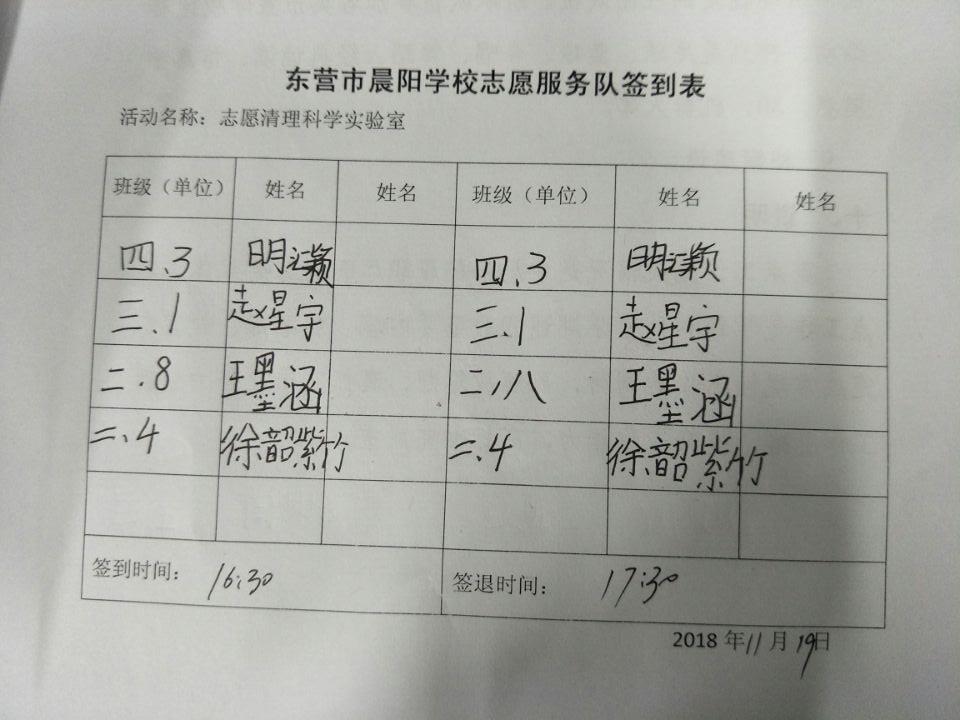 东营市晨阳学校志愿服务队签到表
活动名称：志愿清理科学实验室
班级（单位） 姓名 姓名 班级（单位） 姓名 姓名
四.3 明泫颖 四.3 明泫颖
三.1 赵星宇 三.1 赵星宇
二.8 王墨涵 二.八 王墨涵
二.4 徐韶紫竹 二.4 徐韶紫竹
签到时间： 16:30 签退时间： 17:30
2018年11月19日